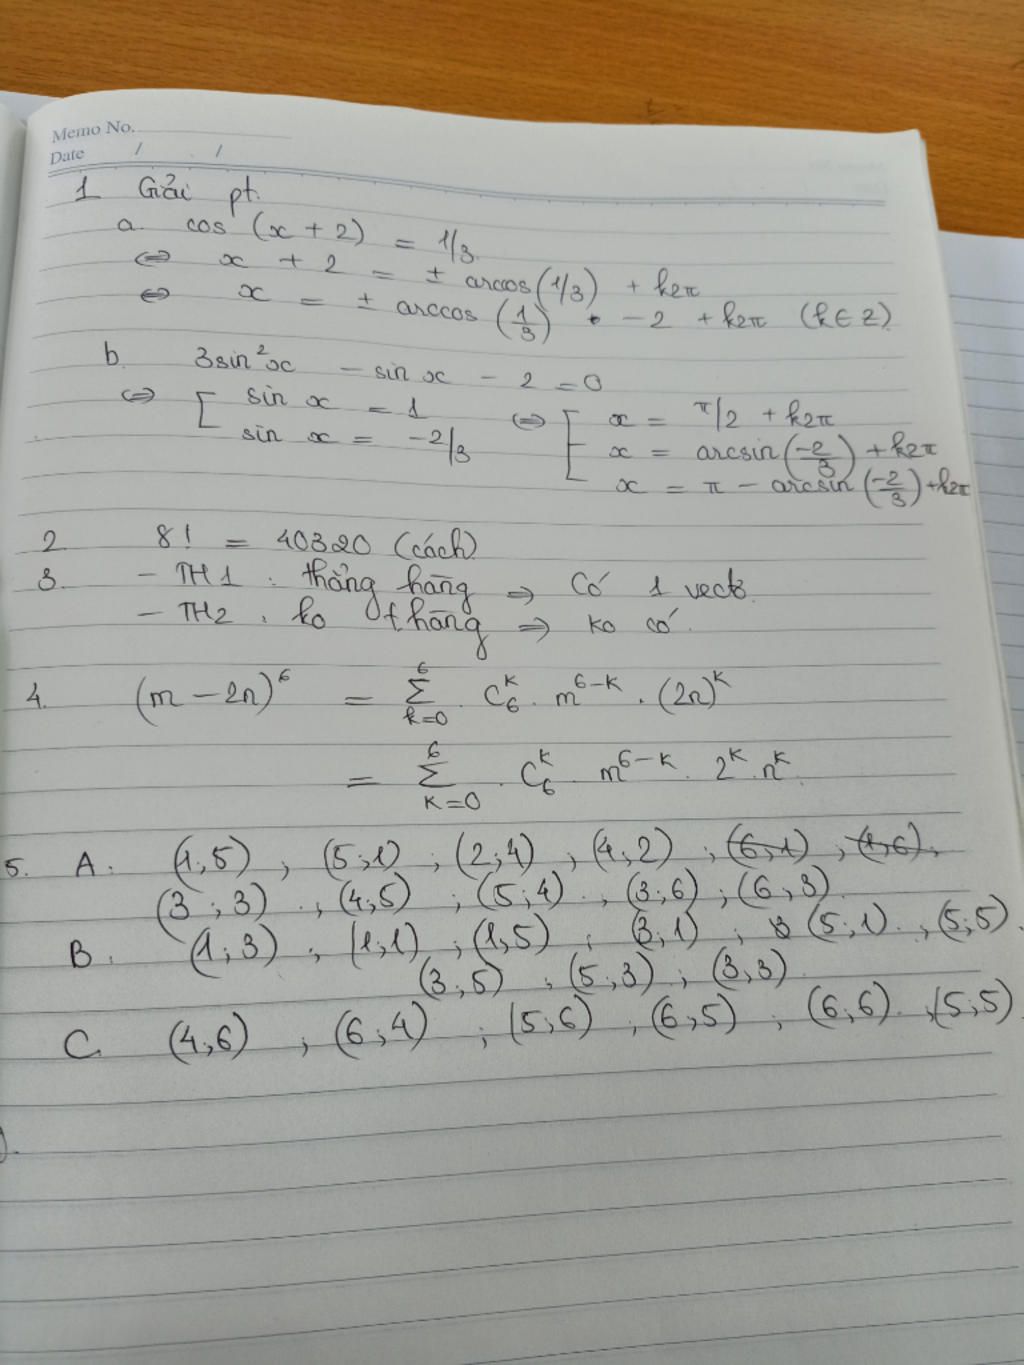 Memo No.
Date / /
1 Giải pt.
a. cos (x + 2) = 1/3.
⇔ x + 2 = ± arcos(1/3) + k2π
⇔ x = ± arccos (1/3) • - 2 + k2π (k ∈ Z)
b. 3sin²x - sin x - 2 = 0
⇔ [ sin x = 1 ⇔ [ x = π/2 + k2π
sin x = -2/3 x = arcsin(-2/3) + k2π
x = π - arcsin(-2/3) + k2π
2 8! = 40320 (cách)
3. - TH1 : thẳng hàng ⇒ Có 1 vectơ.
- TH2 : ko thẳng ⇒ ko có.
4. (m - 2n)⁶ = Σ_{k=0}^{6} C₆ᵏ . m⁶⁻ᵏ . (2n)ᵏ
= Σ_{k=0}^{6} . C₆ᵏ . m⁶⁻ᵏ . 2ᵏ . nᵏ.
5. A. (1;5) ; (5;1) ; (2;4) ; (4;2) ; (6;1) ; (1;6).
(3;3) ; (4;5) ; (5;4) ; (3;6) ; (6;3).
B. (1;3) ; (1;1) ; (1;5) ; (3;1) ; (5;1) ; (5;5).
(3;5) ; (5;3) ; (3;3).
C. (4;6) ; (6;4) ; (5;6) ; (6;5) ; (6;6) ; (5;5).